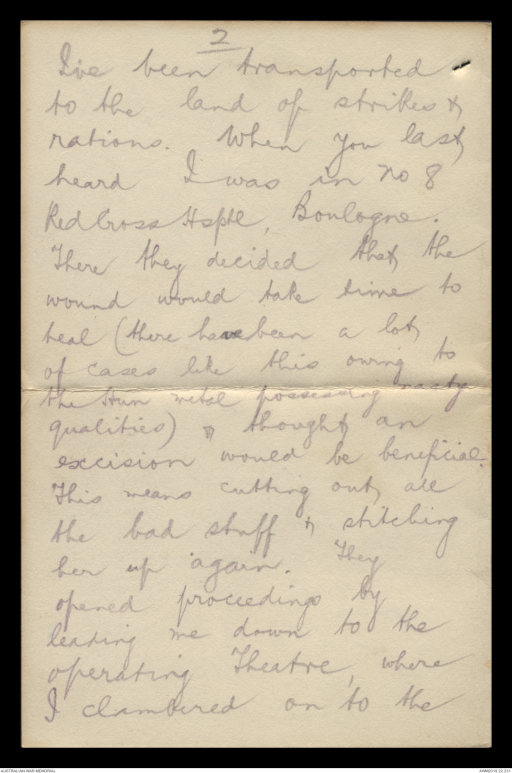 2
I've been transported
to the land of strikes &
rations. When you last
heard I was in No 8
Red Cross Hsptl, Boulogne.
There they decided that the
wound would take time to
heal (there have been a lot
of cases like this owing to
the Hun metal possessing nasty
qualities) & thought an
excision would be beneficial.
This means cutting out all
the bad stuff & stitching
her up again. They
opened proceedings by
leading me down to the
operating Theatre, where
I clambered on to the
AUSTRALIAN WAR MEMORIAL